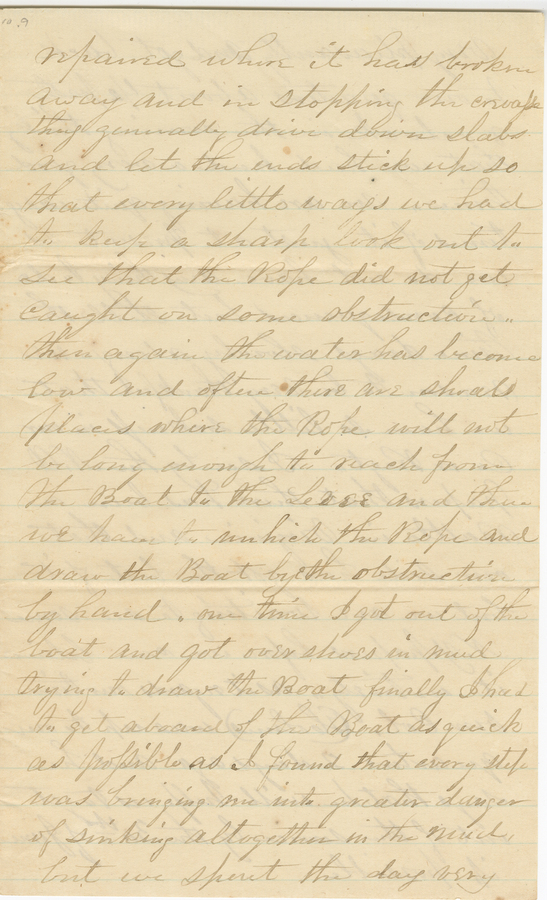 10. 9
repaired where it has broken
away and in stopping the crevass
they generally drive down slabs
and let the ends stick up so
that every little ways we had
to keep a sharp look out to
see that the Rope did not get
caught on some obstruction..
then again the water has become
low and often there are shoals
places where the Rope will not
be long enough to reach from
the Boat to the Levee and then
we have to unhich the Rope and
draw the Boat by the obstruction
by hand. one time I got out of the
boat and got over shoes in mud
trying to draw the Boat finally I had
to get aboard of the Boat as quick
as possible as I found that every step
was bringing me into greater danger
of sinking altogether in the mud.
but we spent the day very